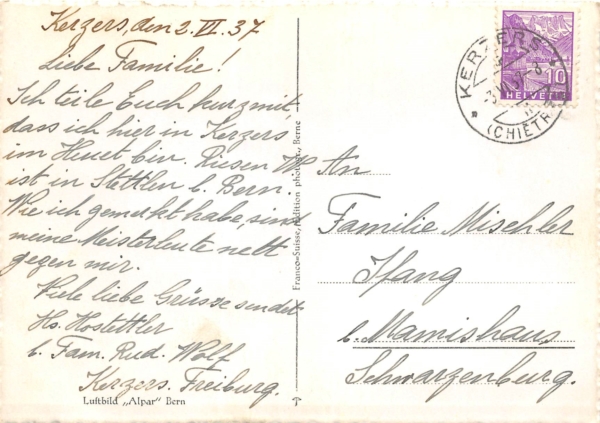 Kerzers, den 2. VI. 37
Liebe Familie!
Ich teile Euch kurz mit,
dass ich hier in Kerzers
im Heuet bin. Riesen
ist in Stettlen b. Bern.
Wie ich gemerkt habe, sind
meine Meisterleute nett
gegen mir.
Viele liebe Grüsse sendet
Hs. Hostettler
b. Fam. Rud. Wolf
Kerzers. Freiburg.
Luftbild „Alpar" Bern
Franco-Suisse, Edition photogr., Berne
KERZERS
(CHIÈTRES)
10
HELVETIA
An
Familie Mischler
Ifang
b. Mamishaus
Schwarzenburg.